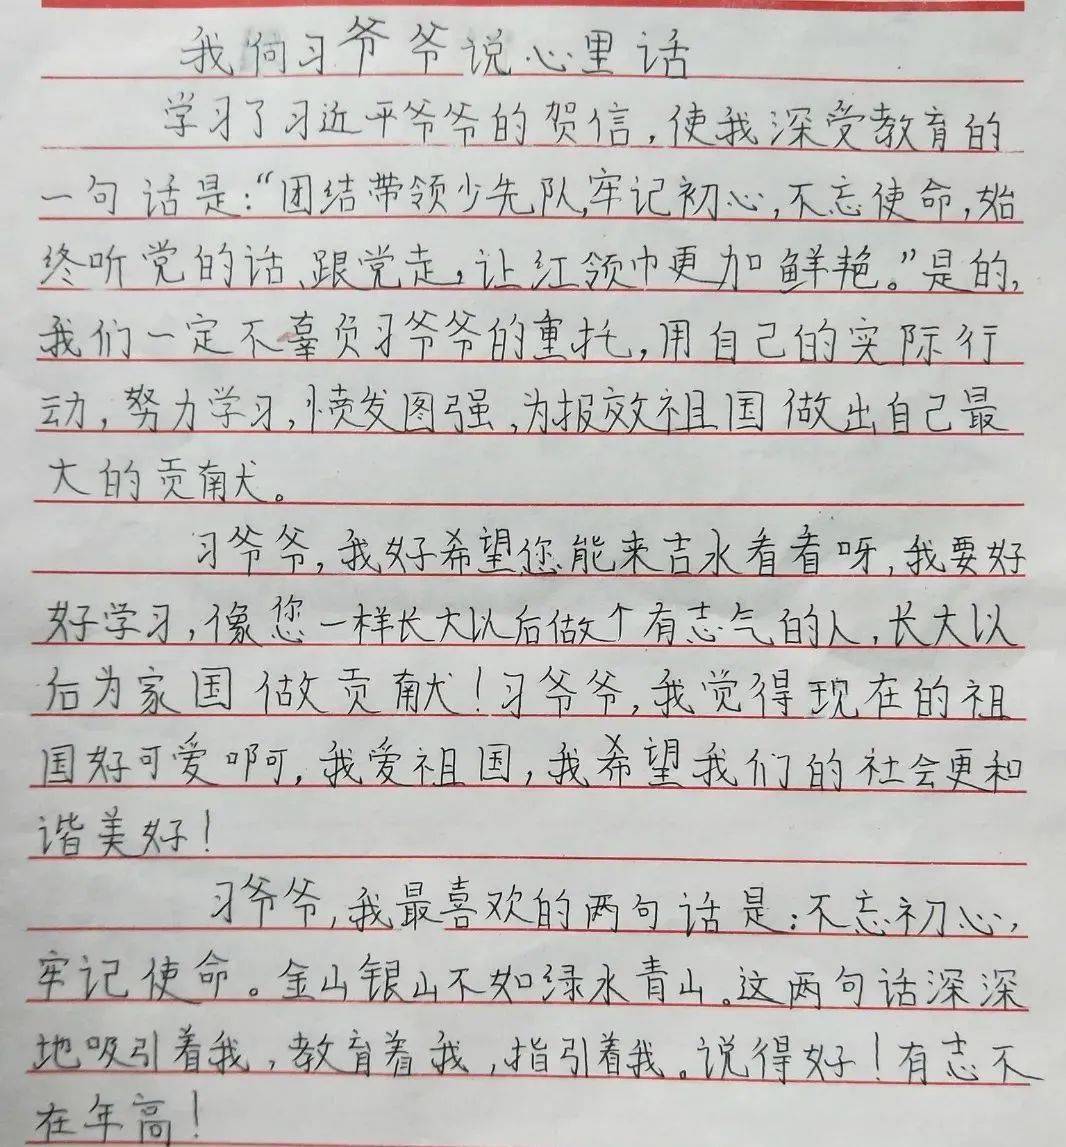 我向习爷爷说心里话
学习了习近平爷爷的贺信,使我深受教育的
一句话是:“团结带领少先队,牢记初心,不忘使命,始
终听党的话、跟党走,让红领巾更加鲜艳。”是的,
我们一定不辜负习爷爷的重托,用自己的实际行
动,努力学习,愤发图强,为报效祖国做出自己最
大的贡献。
习爷爷,我好希望您能来吉水看看呀,我要好
好学习,像您一样长大以后做个有志气的人,长大以
后为家国做贡献!习爷爷,我觉得现在的祖
国好可爱啊,我爱祖国,我希望我们的社会更和
谐美好!
习爷爷,我最喜欢的两句话是:不忘初心,
牢记使命。金山银山不如绿水青山。这两句话深深
地吸引着我,教育着我,指引着我。说得好!有志不
在年高!